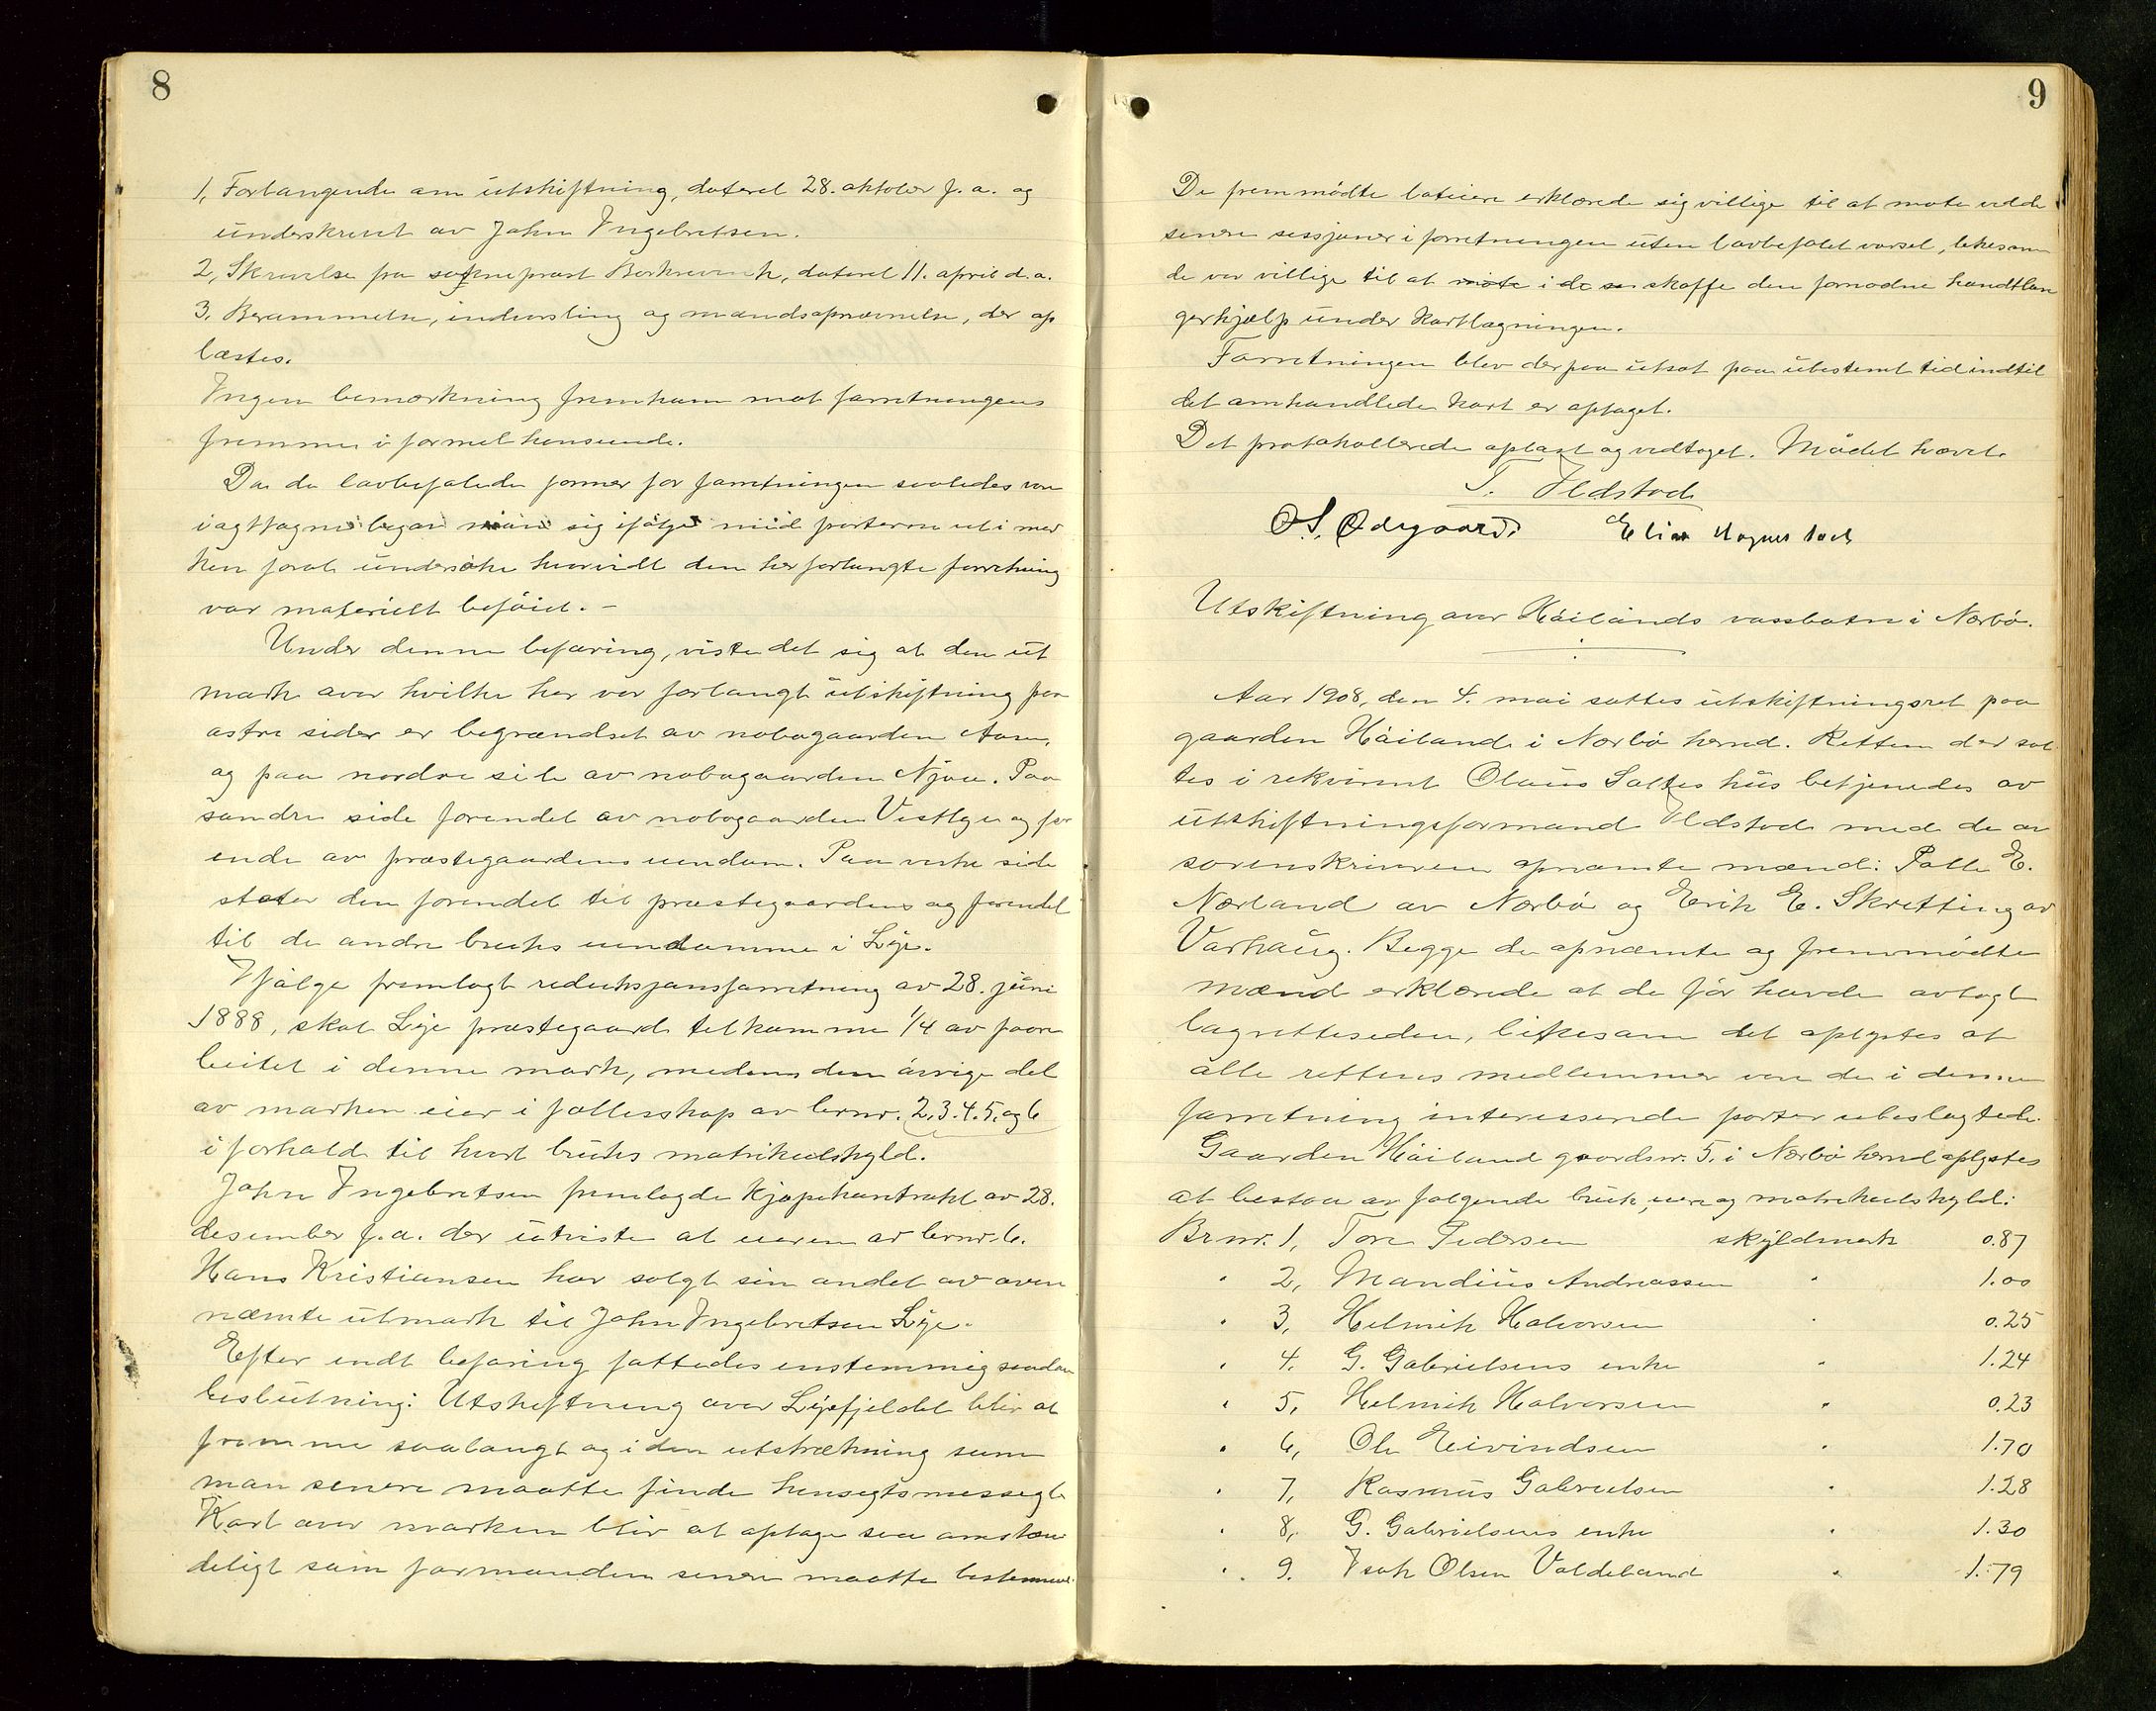 8
1, Forlangende om utskiftning, dateret 28. oktober f.a. og
underskrevet av John Ingebretsen.
2, Skrivelse fra sokneprast, dateret 11. april d.a.
3. Berammelse, indvarsling og mandsopnævnelse, der op
læstes.
Ingen bemerkning fremkom mot forretningens
fremme i formel henseende.
Da de lovbefalede former for forretningen saaledes var
iagttagne begav man sig ifølge med parterne ut i mar
ken forat undersøke hvorvidt den her forlangte forretning
var materielt beføiet. -
Under denne befaring, viste det sig at den ut
mark over hvilke her var forlangt utskiftning paa
østre sider er begrændset av nabogaarden
og paa nordre side av nabogaarden Njaa. Paa
søndre side forendel av nabogaarden Vestlye og for
ende av præstegaardens eiendom. Paa vestre side
støter den forendel til præstegaardens og forendel
til de andre bruks eiendomme i Lye.
Ifølge fremlagt reduksjonsforretning av 28. juni
1888, skal Lye præstegaard tilkomme 1/4 av faare
beitet i denne mark, medens den øvrige del
av marken eier i fællesskap av brnr. 2.3.4.5. og 6
i forhold til hvert bruks matrikulskyld.
John Ingebretsen fremlagde kjøpekontrakt av 28.
desember f.a. der utviste at eieren av brnr. 6.
Hans Kristiansen har solgt sin andel av oven
næmte utmark til John Ingebretsen Lye.
Efter endt befaring fattedes enstemmig saadan
beslutning: Utskiftning over Lyefjeldet blir at
fremme saalangt og i den utstrækning som
man senere maatte finde hensegtsmessegt.
Kart over marken blir at optage saa omstæn
deligt som formanden senere maatte bestemme.
9
De fremmødte loteiere erklærede sig villige til at møte ved de
senere sessjoner i forretningen uten lovbefalet varsel, likesom
de var villige til at møte i de se skaffe den fornødne handtlan
gerhjælp under kartlægningen.
Forretningen blev derpaa utsat paa ubestemt tid indtil
det omhandlede kart er optaget.
Det protokollerede oplæst og vedtaget. Mødet hævet.
T. Ildstad
O. S. Ødegaard. Elias
Utskiftning over Høilands vassbotn i Nærbø.
Aar 1908, den 4. mai sattes utskiftningsret paa
gaarden Høiland i Nærbø herred. Retten der sat
tes i rekvirent Olaus Saltes hus betjenedes av
utskiftningsformand Ildstad med de av
sorenskriveren opnæmte mænd: Palle E.
Nærland av Nærbø og Erik E. Skretting av
Varhaug. Begge de opnæmte og fremmødte
mænd erklærede at de før havde avlagt
lagretteseden, likesom det oplystes at
alle rettens medlemmer var de i denne
forretning interessende parter ubeslagtede.
Gaarden Høiland gaardsnr. 5, i Nærbø herred oplystes
at bestaa av følgende bruk, eiere og matrikulskyld:
Brnr. 1, Tore Pedersen skyldmark 0.87
" 2, Mandius Andreassen " 1.00
" 3, Helmik Halvorsen " 0.25
" 4. G. Gabrielsens enke " 1.24
" 5, Helmik Halvorsen " 0.23
" 6, Ole Eivindsen " 1.70
" 7, Rasmus Gabrielsen " 1.28
" 8, G. Gabrielsens enke " 1.30
" 9. Isak Olsen Valdeland " 1.79